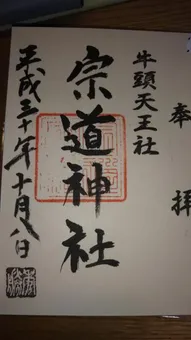 奉拝
牛頭天王社
宗道神社
平成三十年十月八日